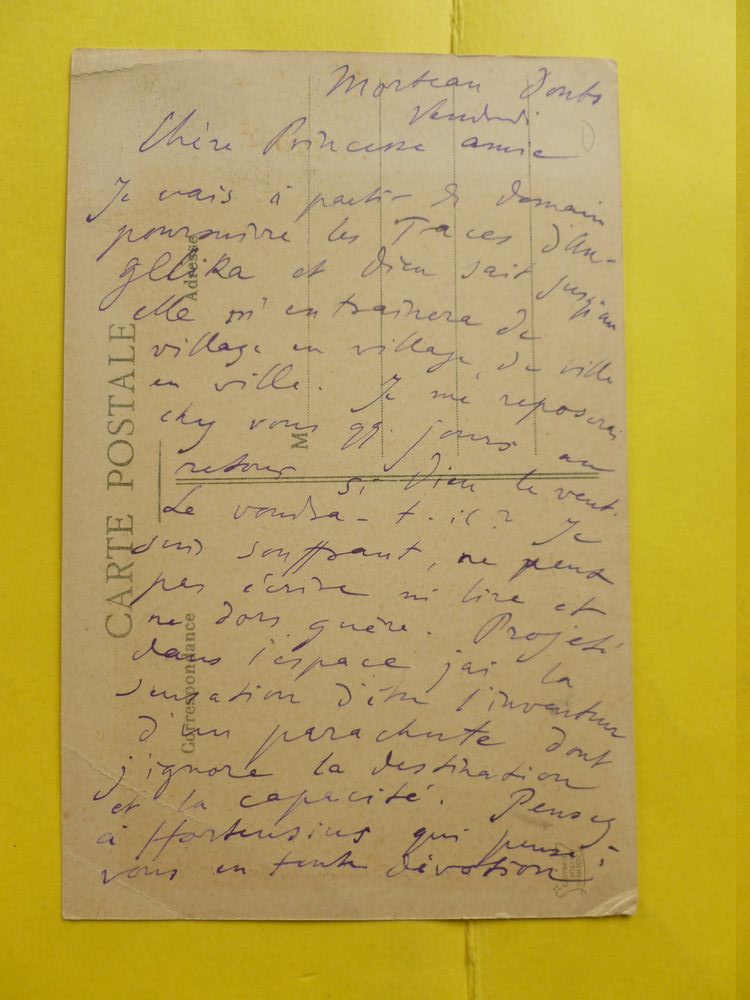 Morteau Doubs
Vendredi
Chère Princesse amie
Je vais à partir de demain
poursuivre les Traces d'An-
gélika et Dieu sait jusqu'au
elle m'entraînera de
village en village, de ville
en ville. Je me reposerai
chez vous qq. jours au
retour si Dieu le veut.
Le voudra-t-il? Je
suis souffrant, ne peux
pas écrire ni lire et
ne dors guère. Projeté
dans l'espace j'ai la
sensation d'être l'inventeur
d'un parachute dont
j'ignore la destination
et la capacité. Pensez
à Hortensius qui pense à
vous en toute dévotion
CARTE POSTALE
Correspondance
Adresse
M